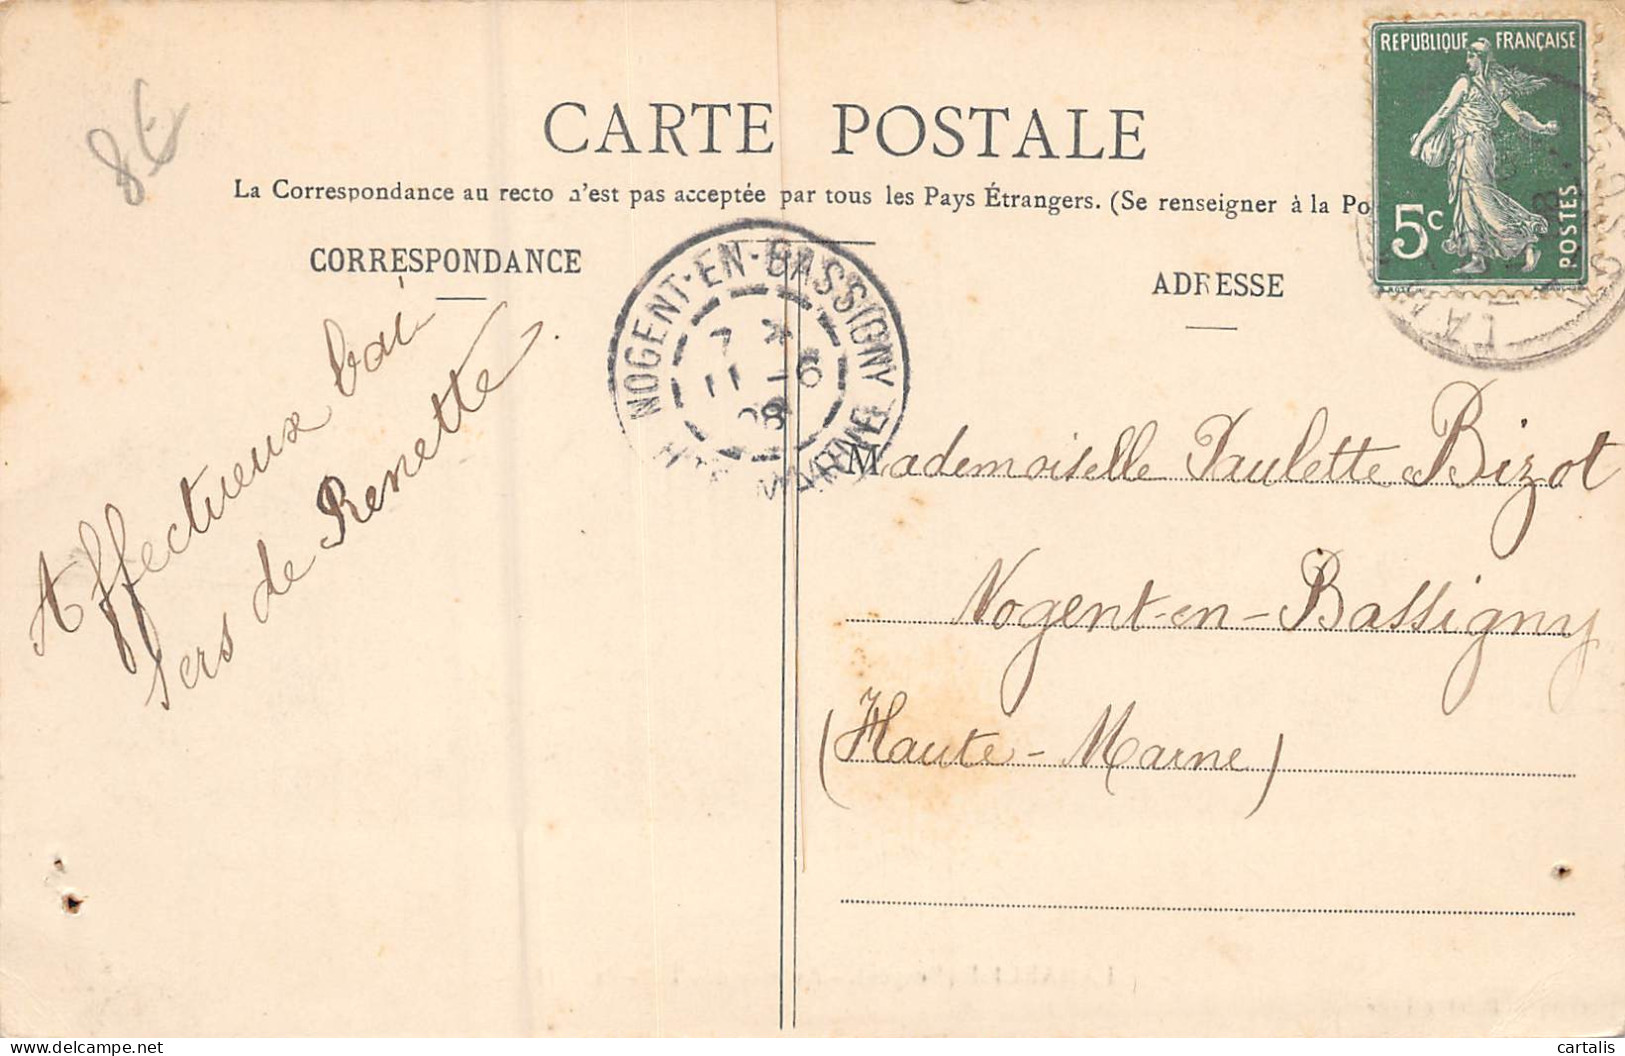 8€
CARTE POSTALE
La Correspondance au recto n'est pas acceptée par tous les Pays Étrangers. (Se renseigner à la Po
CORRESPONDANCE
ADRESSE
RÉPUBLIQUE FRANÇAISE
5c
POSTES
NOGENT-EN-BASSIGNY
7
11 -6
08
MARNE
Affectueux bai-
sers de Renette.
Mademoiselle Paulette Bizot
Nogent-en-Bassigny
(Haute-Marne)
cartalis